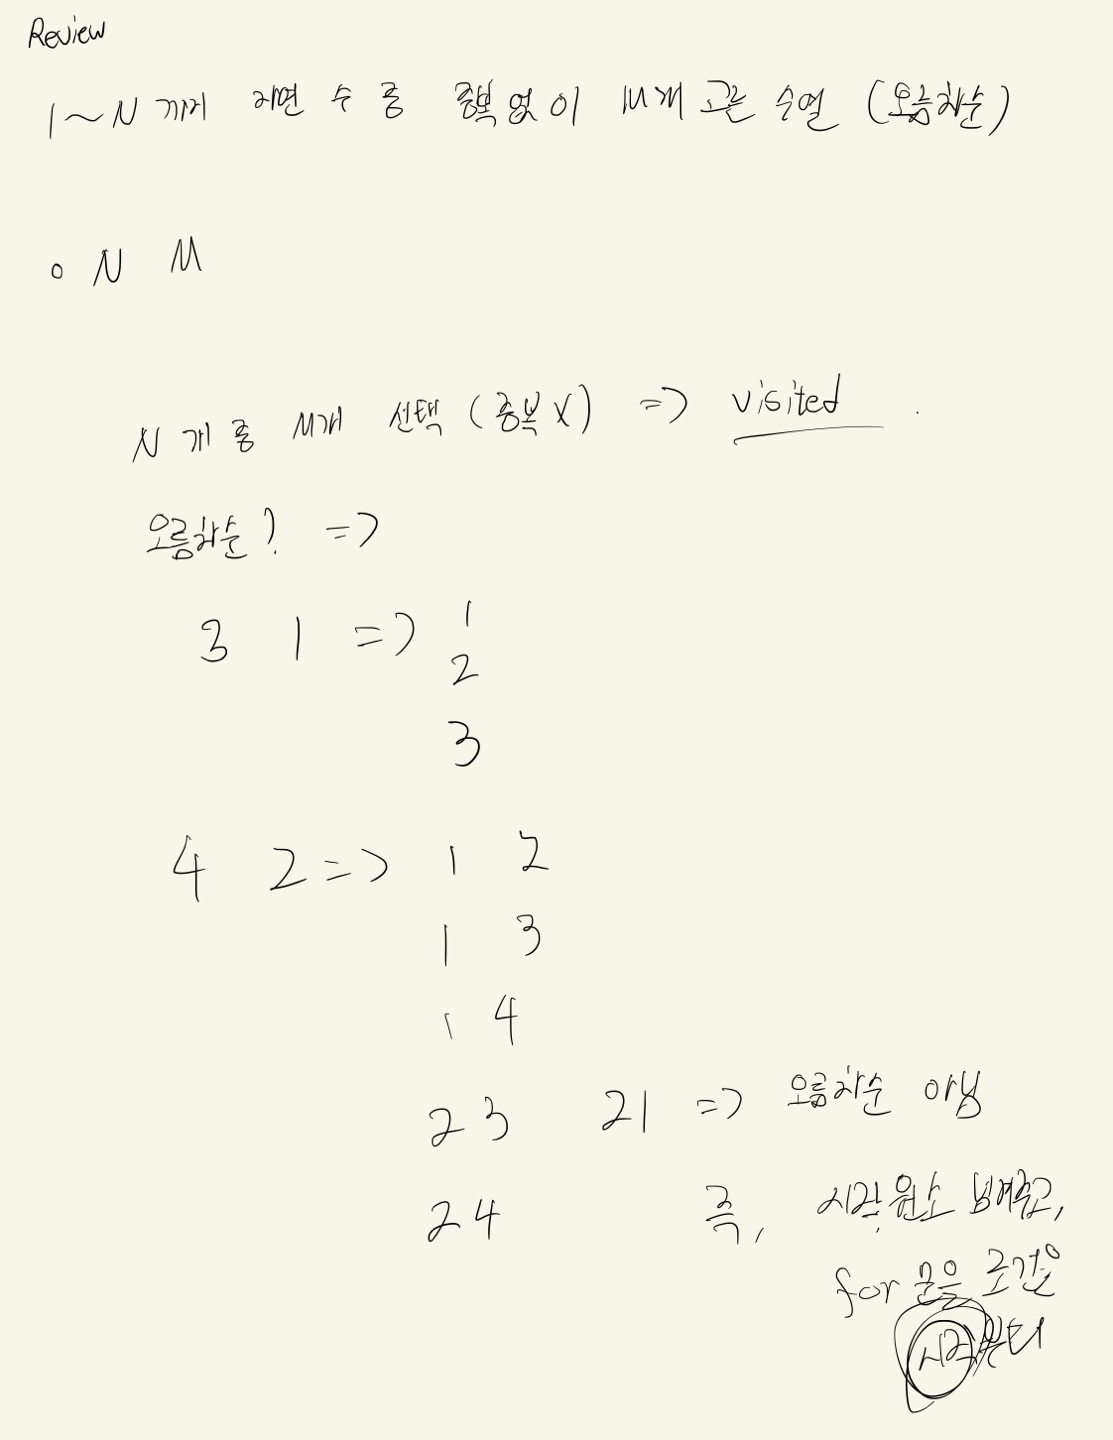 Review
1~N 까지 자연 수 중 중복 없이 M개 고른 수열 (오름차순)
o N M
N 개 중 M개 선택 (중복 X) => visited
오름차순? =>
3 1 => 1
2
3
4 2 => 1 2
1 3
1 4
2 3 21 => 오름차순 아님
2 4 즉, 시작 원소 넘겨주고,
for 문을 조건은
시작부터